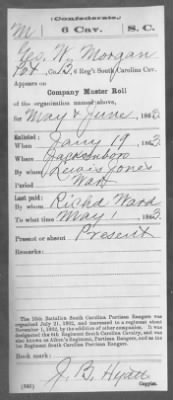 (Confederate.)
M 6 Cav. S. C.
Geo. W. Morgan
Pvt, Co. B, 6 Reg't South Carolina Cav.
Appears on
Company Muster Roll
of the organization named above,
for May & June, 1863.
Enlisted:
When Jany 19, 1863.
Where Jacksonboro
By whom Lewis Jones
Period War
Last paid:
By whom Richd Ward
To what time May 1, 1863.
Present or absent Present
Remarks:
The 16th Battalion South Carolina Partisan Rangers was
organized July 21, 1862, and increased to a regiment about
November 1, 1862, by the addition of other companies. It was
designated the 6th Regiment South Carolina Cavalry, and was
also known as Aiken's Regiment, Partisan Rangers, and as the
1st Regiment South Carolina Partisan Rangers.
Book mark:
J. B. Hyatt
(642) Copyist.